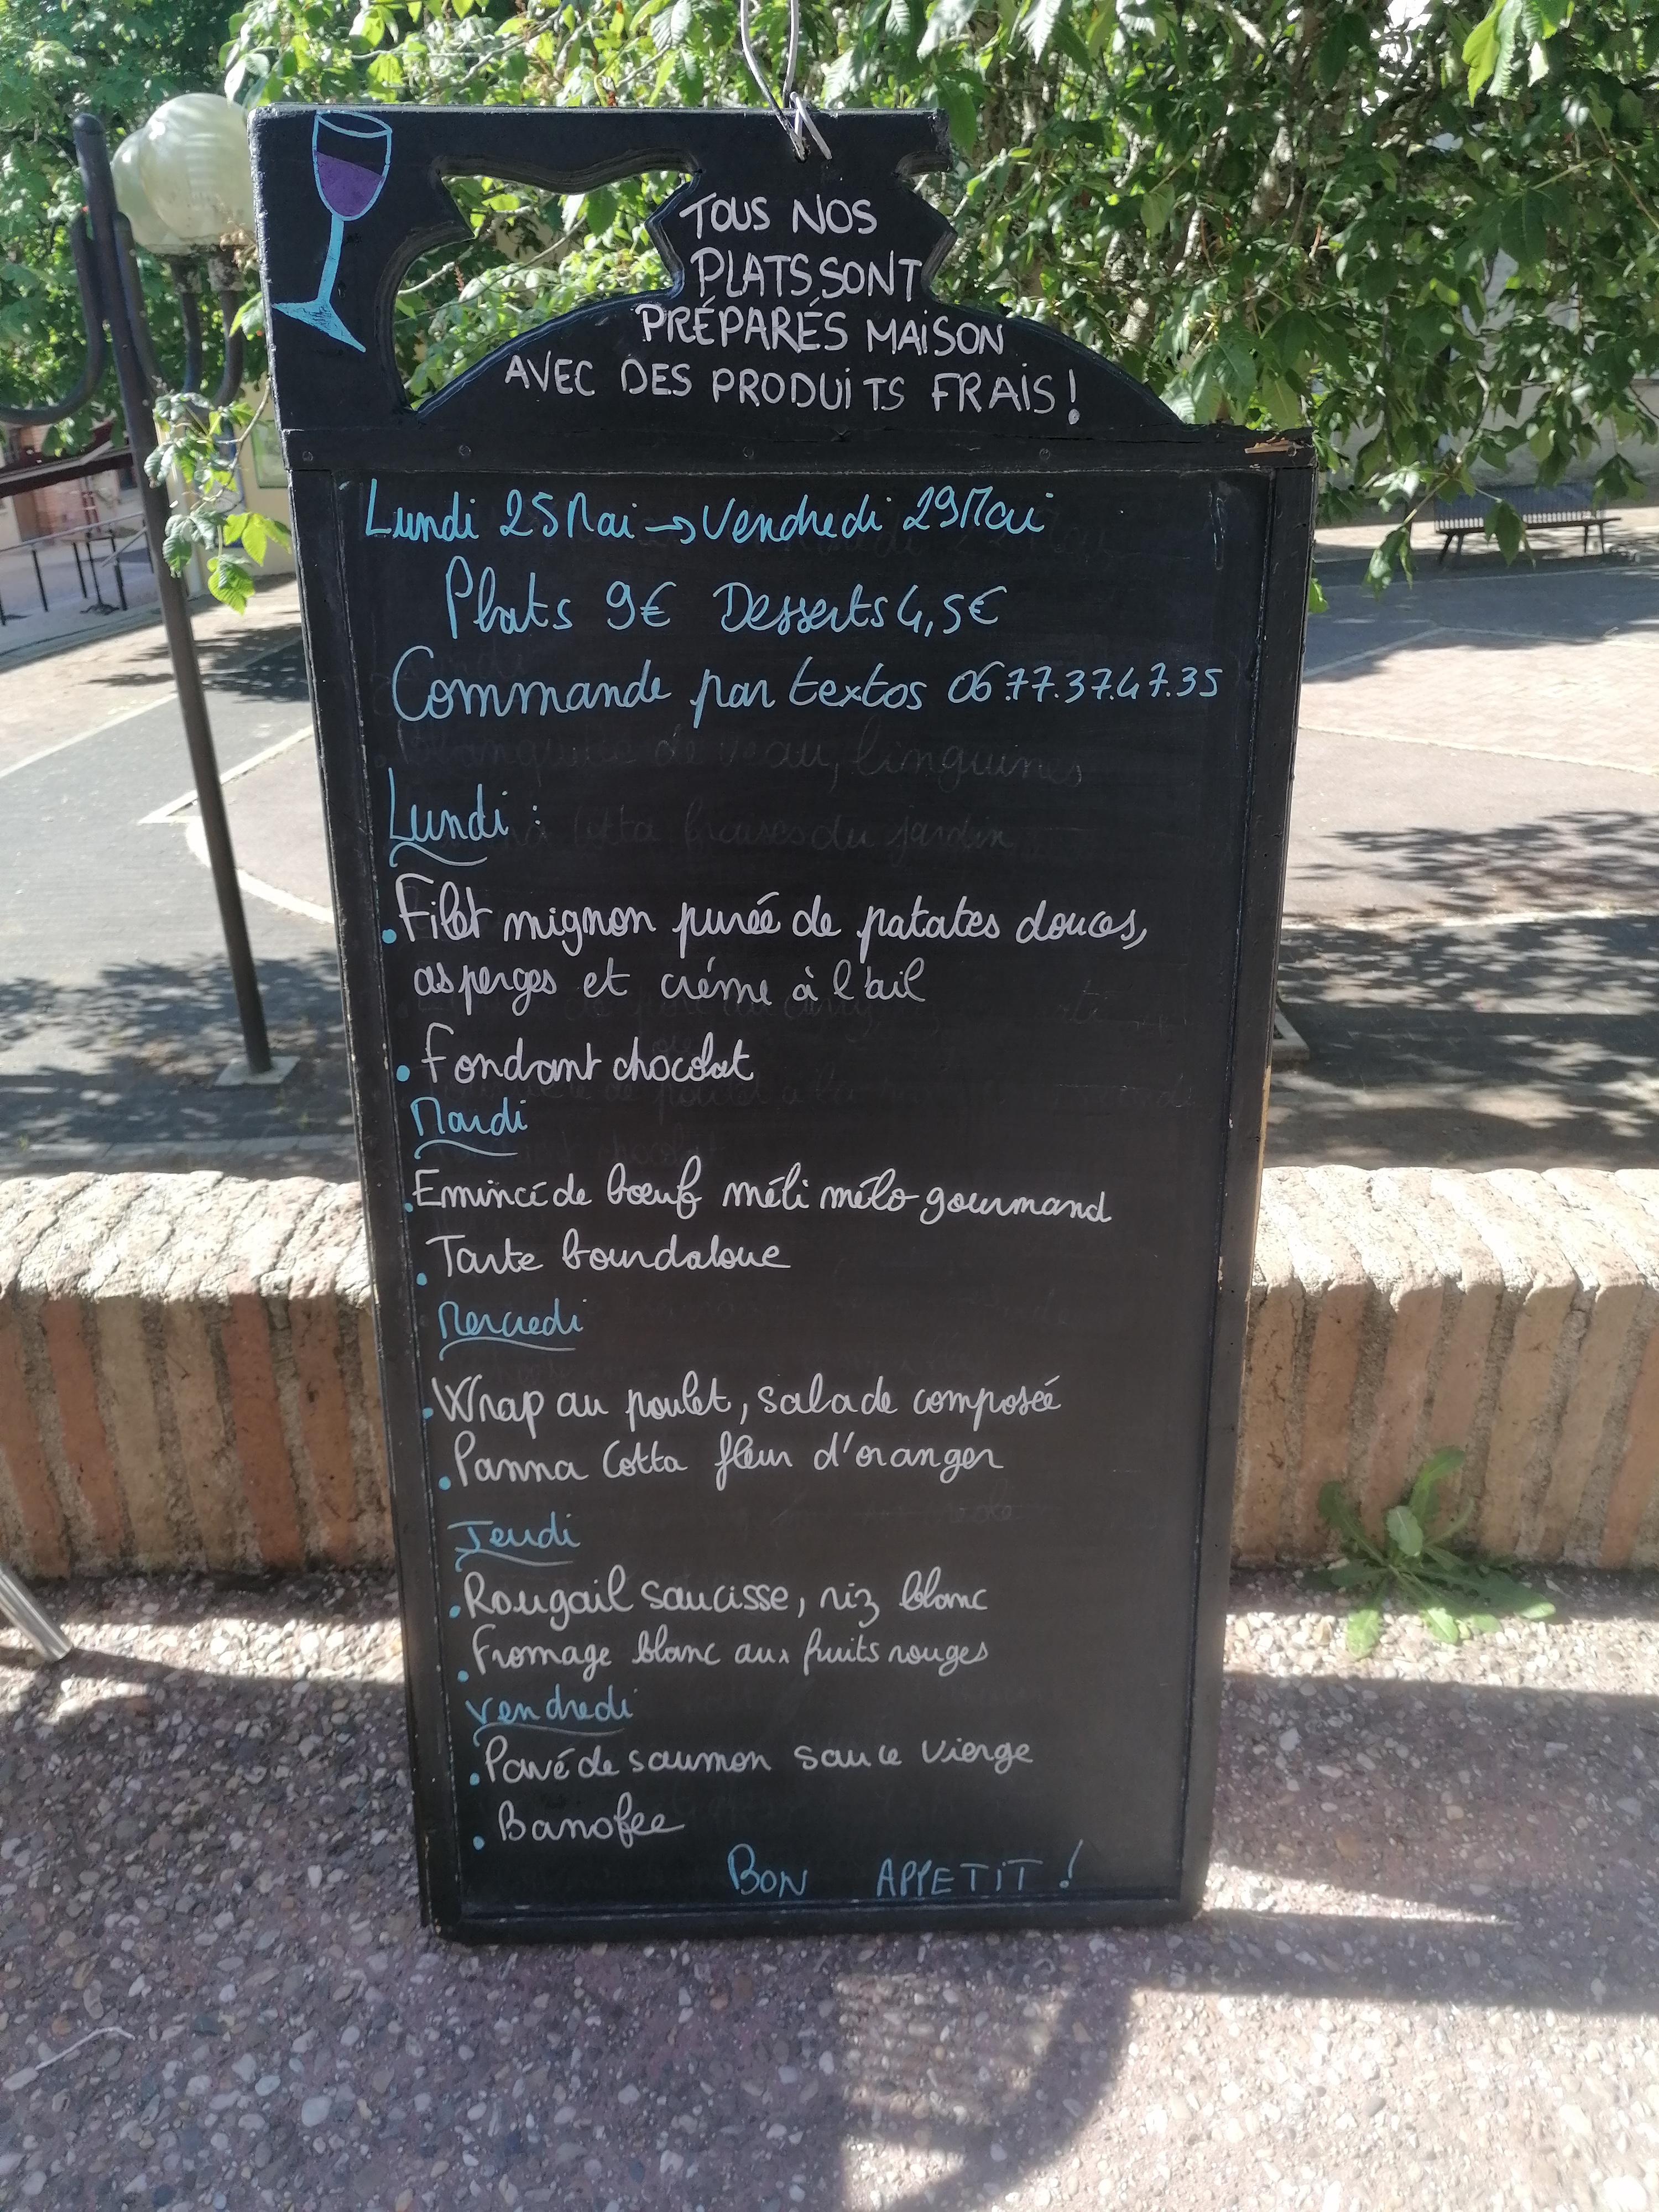 TOUS NOS
PLATS SONT
PRÉPARÉS MAISON
AVEC DES PRODUITS FRAIS !
Lundi 25 Mai → Vendredi 29 Mai
Plats 9€ Desserts 4,5€
Commande par textos 06.77.37.47.35
Blanquette de veau, linguines
Lundi :
Cotta fraises du jardin
• Filet mignon purée de patates douces,
asperges et crème à l'ail
• Fondant chocolat
Mardi
• Emincé de bœuf méli mélo gourmand
• Tarte bourdaloue
Mercredi
• Wrap au poulet, salade composée
• Panna Cotta fleur d'oranger
Jeudi
• Rougail saucisse, riz blanc
• Fromage blanc aux fruits rouges
Vendredi
• Pavé de saumon sauce vierge
• Banofee
BON APPETIT !